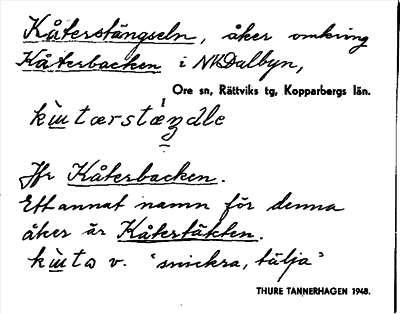 Kåterstängseln, åker omkring
Kåterbacken i NVDalbyn,
Ore sn, Rättviks tg, Kopparbergs län.
kɯtærstæŋdle
Jfr Kåterbacken.
Ett annat namn för denna
åker är Kåtertäkten.
kɯta v. "snickra, tälja"
THURE TANNERHAGEN 1948.